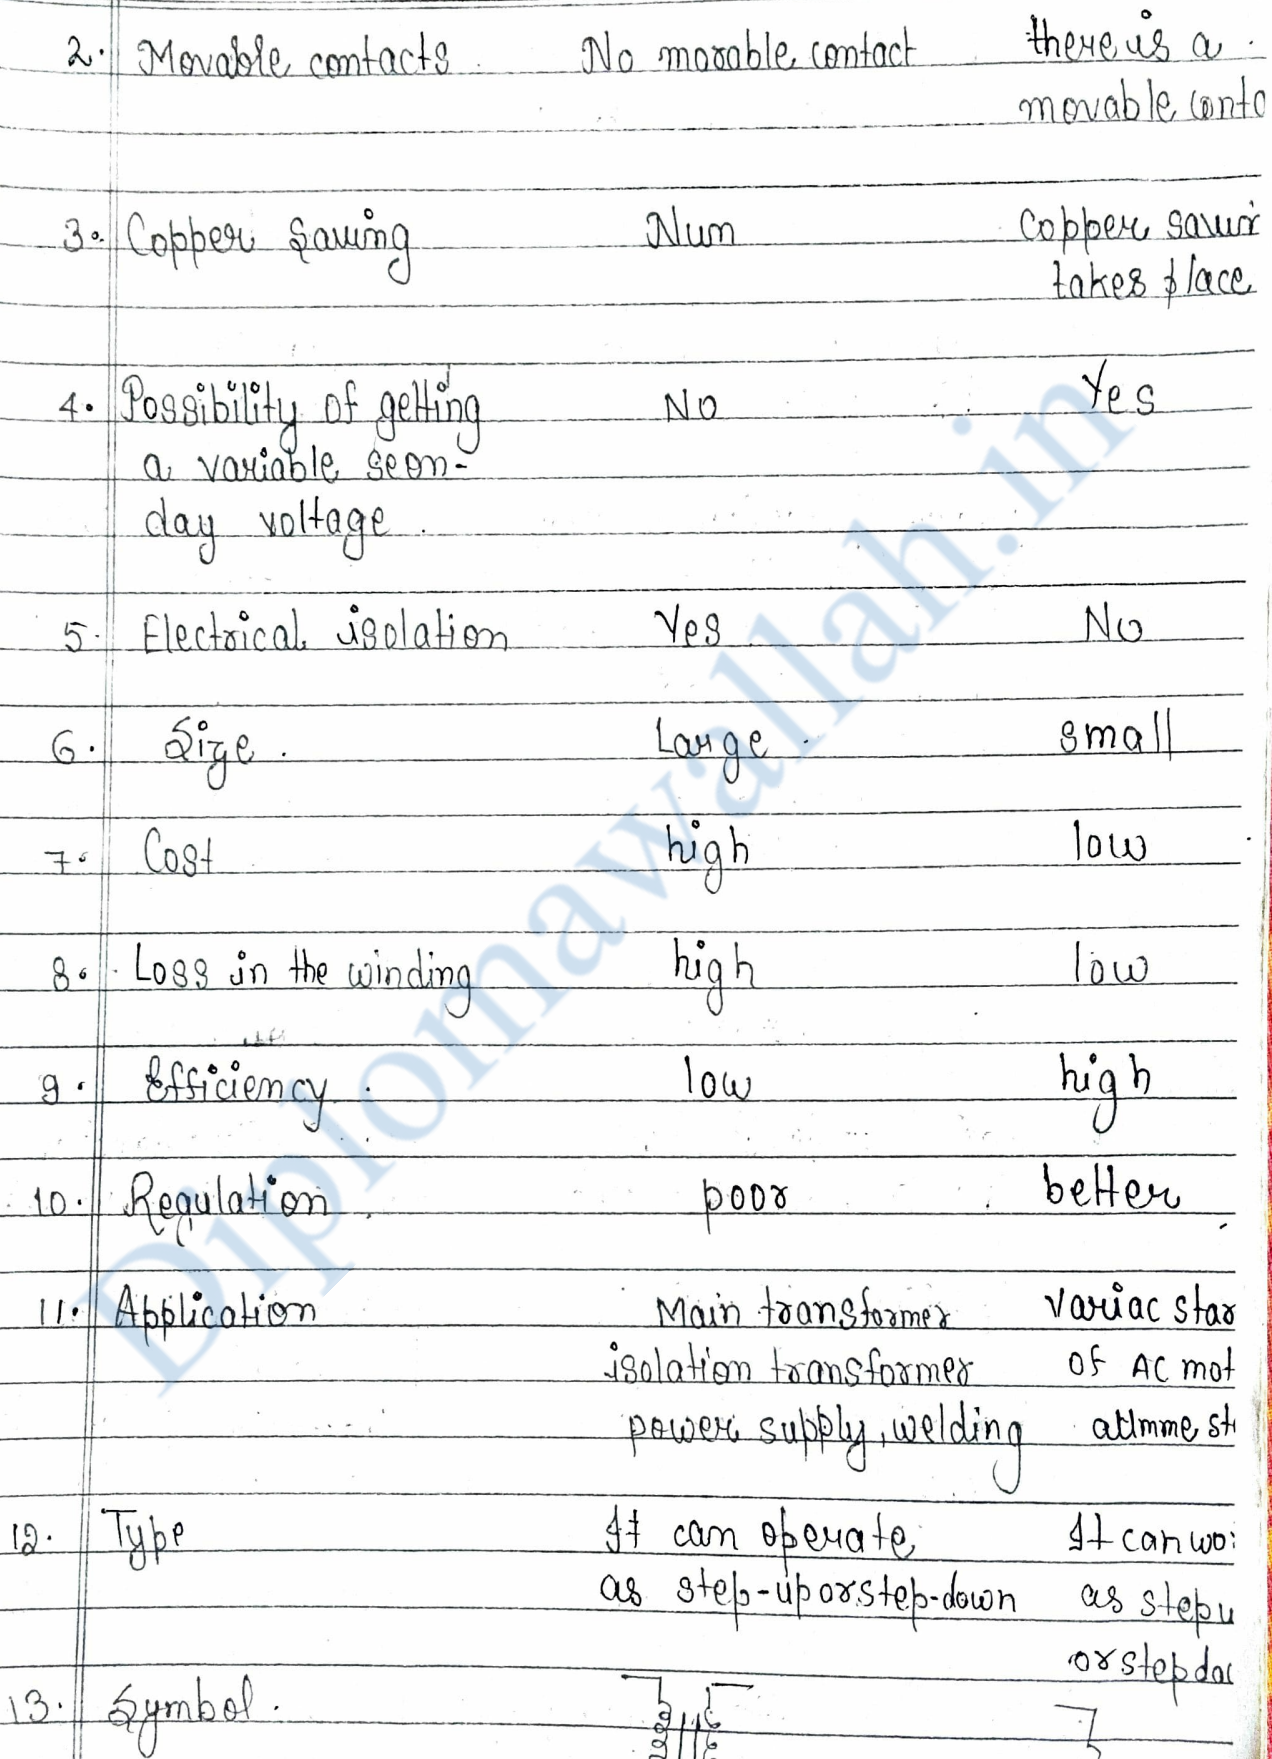 2. Movable contacts No movable contact there is a
movable conta
3. Copper Saving Num Copper savin
takes place
4. Possibility of getting No Yes
a variable secon-
day voltage.
5. Electrical isolation Yes No
6. Size. Large small
7. Cost high low
8. Loss in the winding high low
9. Efficiency. low high
10. Regulation poor better
11. Application Main transformer variac star
isolation transformer of AC mot
power supply, welding st
12. Type It can operate It can wo
as step-up or step-down as step u
or step do
13. Symbol.
Diplomawallah.in